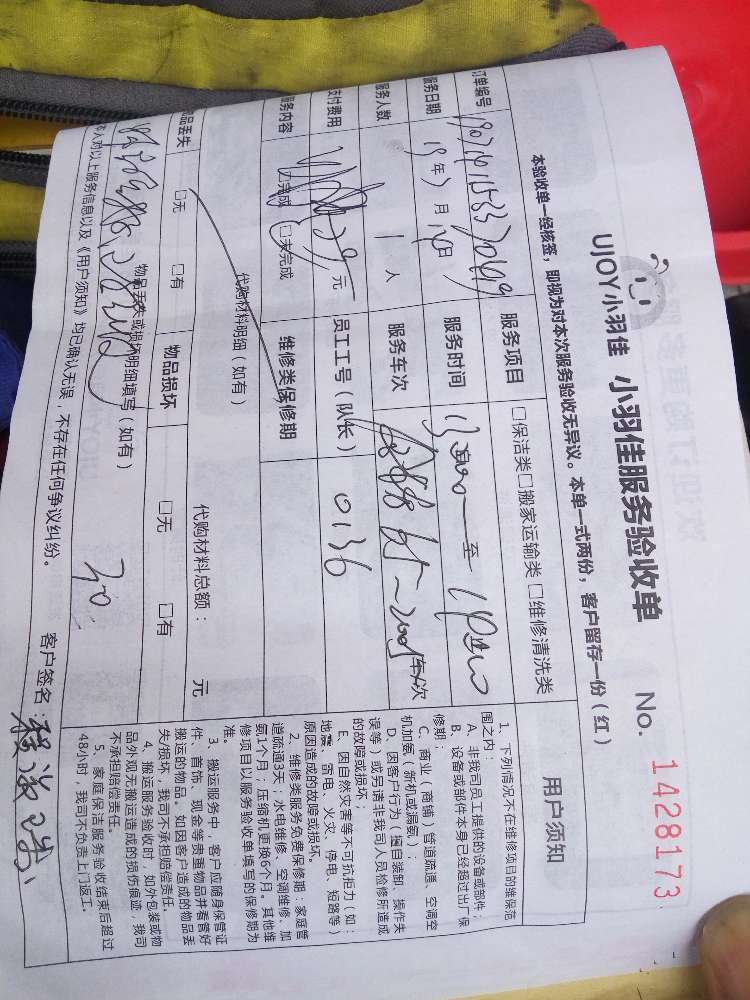 UJOY小羽佳 小羽佳服务验收单 No. 1428173
本验收单一经核签，即视为对本次服务验收无异议。本单一式两份，客户留存一份（红）
订单编号 服务项目 □保洁类□搬家运输类 □维修清洗类
服务日期 19年7月 日 服务时间 至
服务人数 1 人 服务车次 车次
支付费用 元 员工工号（队长） 0136
服务内容 □完成 □未完成 维修类保修期
代购材料明细（如有） 代购材料总额： 元
物品丢失 □无 □有 物品损坏 □无 □有
物品丢失或损坏明细填写（如有）
本人对以上服务信息以及《用户须知》均已确认无误，不存在任何争议纠纷。 客户签名：
用户须知
1、下列情况不在维修项目的维保范
围之内：
A、非我司员工提供的设备或部件；
B、设备或部件本身已经超过出厂保
修期；
C、商业（商铺）管道疏通、空调空
机加氨（新机或漏氨）；
D、因客户行为（擅自装卸、操作失
误等）或另请非我司人员检修所造成
的故障或损坏；
E、因自然灾害等不可抗拒力（如：
地震、雷电、火灾、停电、短路等）
原因造成的故障或损坏。
2、维修类服务免费保修期：家庭管
道疏通3天；水电维修、空调维修、加
氨1个月；压缩机更换6个月。其他维
修项目以服务验收单填写的保修期为
准。
3、搬运服务中，客户应随身保管证
件、首饰、现金等贵重物品并看管好
搬运的物品。如因客户造成的物品丢
失/损坏，我司不承担赔偿责任。
4、搬运服务验收时，如外包装或物
品外观无搬运造成的损伤痕迹，我司
不承担赔偿责任。
5、家庭保洁服务验收结束后超过
48小时，我司不负责上门返工。